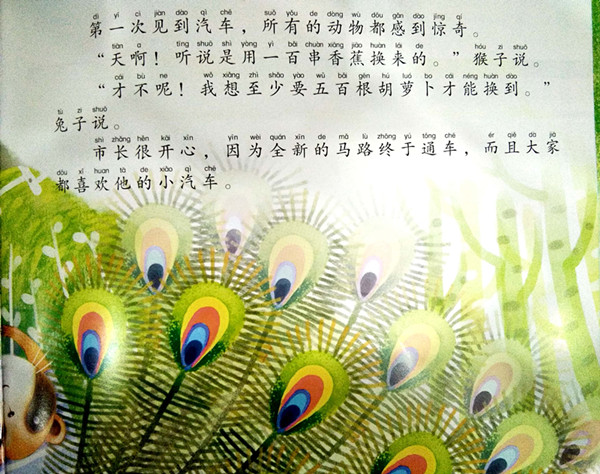 dì yí cì jiàn dào qì chē suǒ yǒu de dòng wù dōu gǎn dào jīng qí
第一次见到汽车，所有的动物都感到惊奇。
tiān a tīng shuō shì yòng yì bǎi chuàn xiāng jiāo huàn lái de hóu zi shuō
“天啊！听说是用一百串香蕉换来的。”猴子说。
cái bù ne wǒ xiǎng zhì shǎo yào wǔ bǎi gēn hú luó bo cái néng huàn dào
“才不呢！我想至少要五百根胡萝卜才能换到。”
tù zi shuō
兔子说。
shì zhǎng hěn kāi xīn yīn wèi quán xīn de mǎ lù zhōng yú tōng chē ér qiě dà jiā
市长很开心，因为全新的马路终于通车，而且大家
dōu xǐ huan tā de xiǎo qì chē
都喜欢他的小汽车。